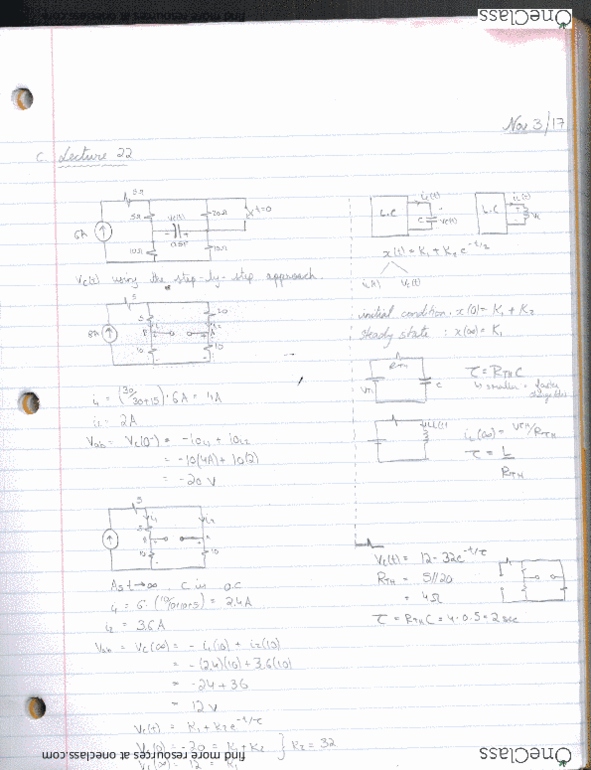 find more resources at oneclass.com
OneClass
Nov 3/17
C Lecture 22
5Ω
6A
5Ω
Vc(t)
20Ω
t=0
10Ω
0.5F
10Ω
Vc(t) using the step-by-step approach.
5
5
20
10
10
i₁ = (30/30+15)·6A = 4A
i₂ = 2A
Vab = Vc(0⁻) = -10i₁ + 10i₂
= -10(4A) + 10(2)
= -20 V
5
10
10
As t→∞, C is o.c
i₁ = 2.4A
i₂ = 3.6A
Vab = Vc(∞) = -i₁(10) + i₂(10)
= -(2.4)(10) + 3.6(10)
= -24 + 36
= 12 V
Vc(t) = K₁ + K₂e^-t/τ
Vc(0) = -20 = K₁ + K₂ } K₂ = 32
Vc(∞) = 12 = K₁
L.C
ic(t)
C
Vc(t)
L.C
iL(t)
x(t) = K₁ + K₂e^-t/τ
Vc(t)
initial condition: x(0) = K₁ + K₂
steady state : x(∞) = K₁
RTH
C
τ = RTH C
↳ smaller = faster
iL(t)
iL(∞) = VTH/RTH
τ = L/RTH
Vc(t) = 12 - 32e^-t/τ
RTH = 5//20
= 4Ω
τ = RTH C = 4·0.5 = 2 sec
find more resources at oneclass.com
OneClass